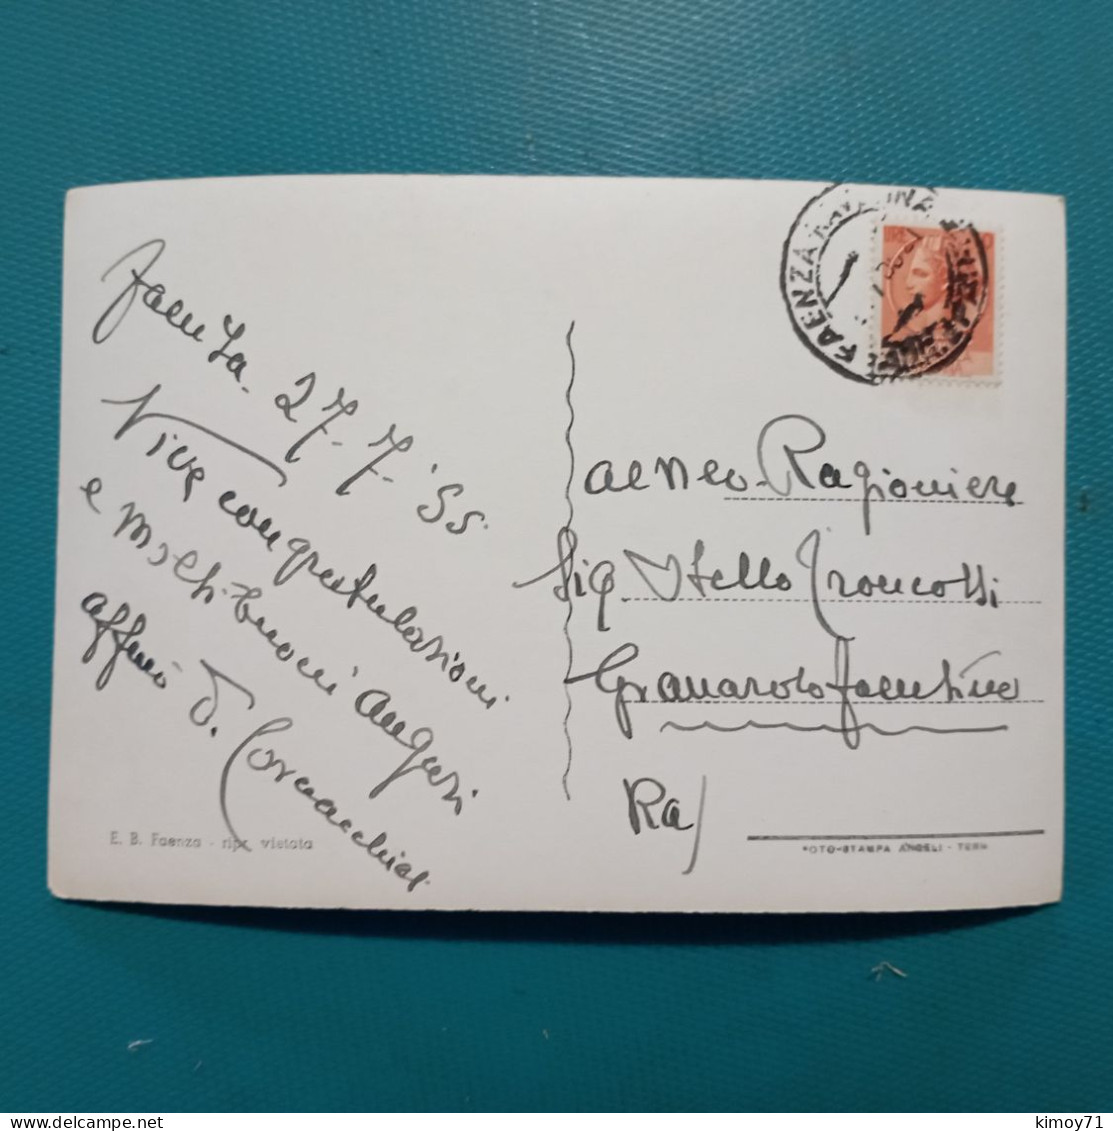 Faenza 27-7-'55
Vive congratulazioni
e molti buoni auguri
affmo D. Cornacchia
E. B. Faenza - ripr. vietata
FAENZA RAVENNA
al Neo-Ragioniere
Sig. Otello Troncossi
Granarolo Faentino
Ra/
FOTO-STAMPA ANGELI - TERNI
kimoy71